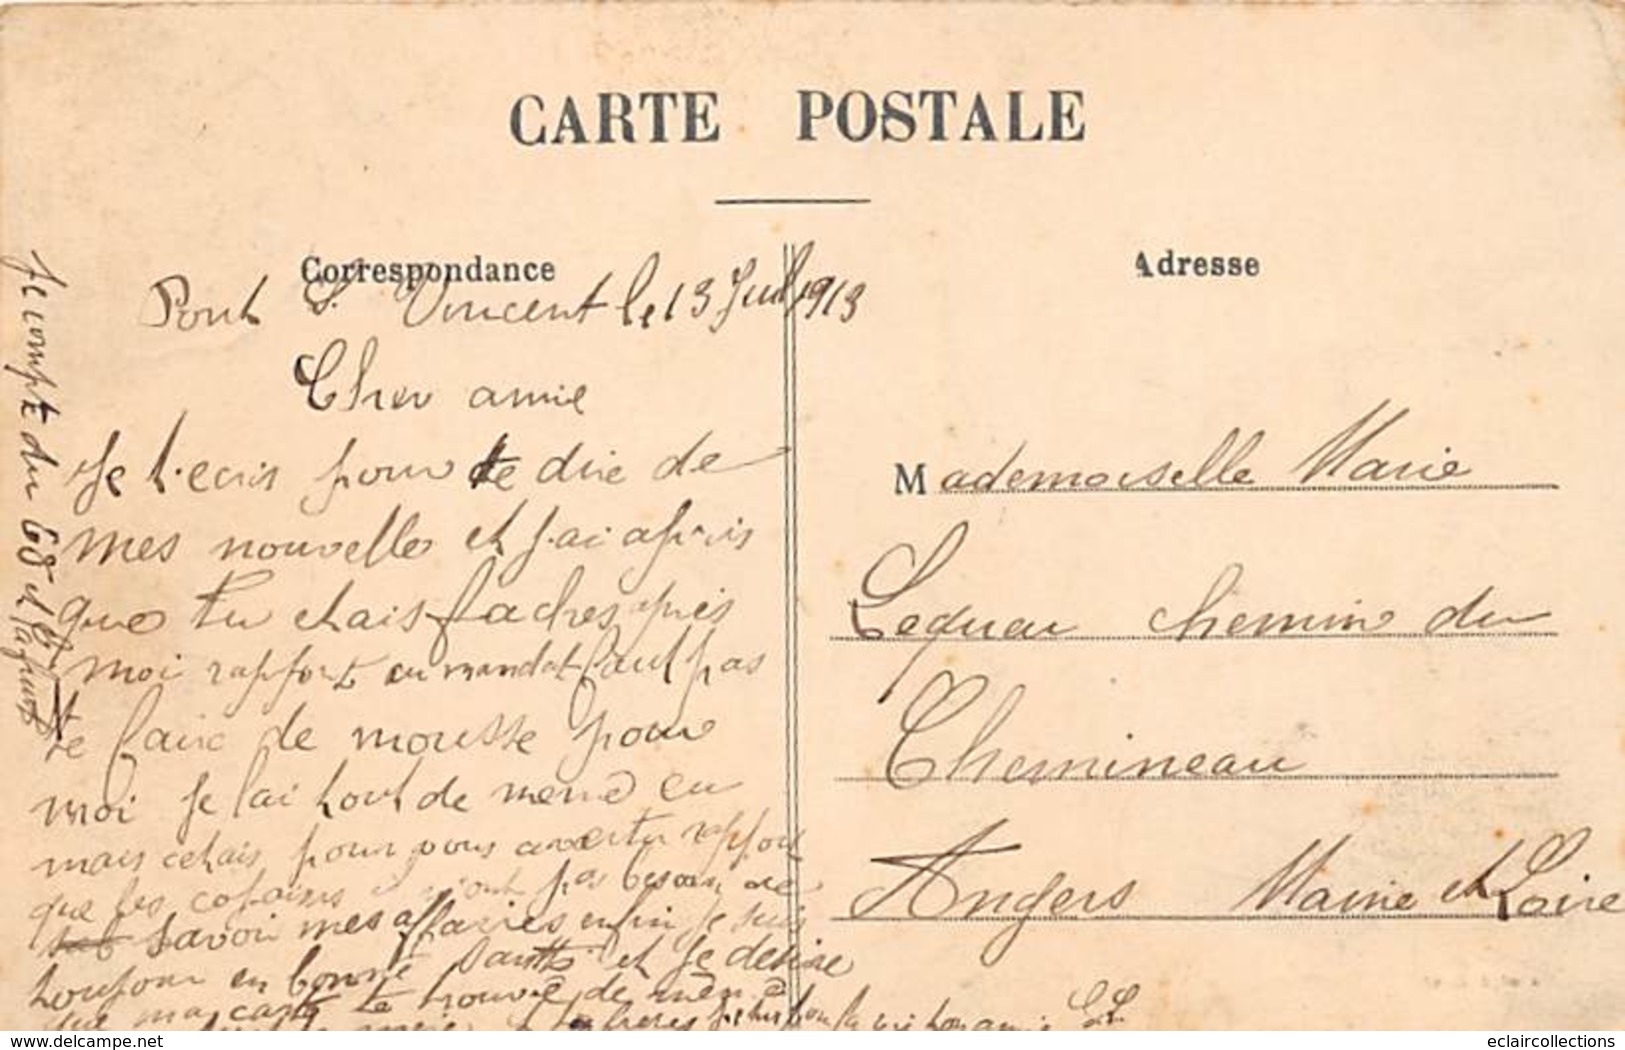 CARTE POSTALE
Correspondance
Adresse
Pont St Vincent le 13 Juil 1913
Cher amie
Je t'ecris pour te dire de
mes nouvelle et j'ai apris
que tu etais faches apres
moi rapport au mandat faut pas
te faire de mousse pour
moi je l'ai tout de meme eu
mais cetais pour vous avertir rapport
que les copains n'ont pas besoin de
savoir mes affaires enfin je suis
toujour en bonne santé et je desire
que ma carte te trouve de même
ton amie
Je compte du 68 et la
Mademoiselle Marie
Lequeu chemin du
Chemineau
Angers Maine et Loire
www.delcampe.net
eclaircollections